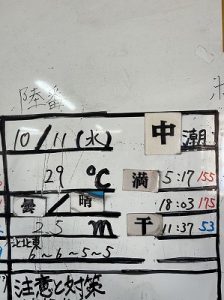 陸番
10/11(水) 中潮
29 ℃ 満 5:17 155
曇/晴 18:03 175
2.5 m 干 11:37 53
北北東
6~6~5~5
注意と対策